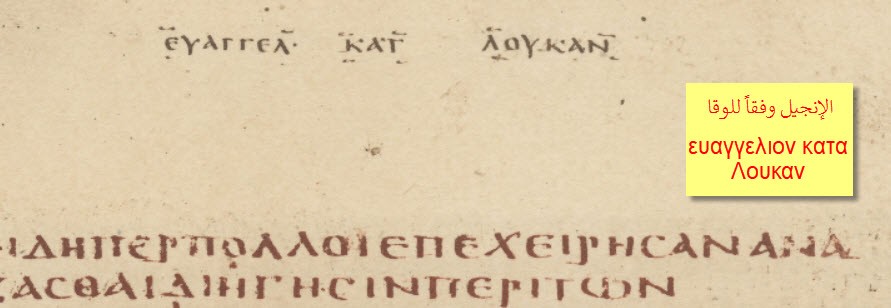 ΕΥΑΓΓΕΛ· ΚΑΤ ΛΟΥΚΑΝ
الإنجيل وفقاً للوقا
ευαγγελιον κατα
Λουκαν
ΙΔΗΠΕΡΠΟΛΛΟΙΕΠΕΧΕΙΡΗϹΑΝΑΝΑ
ΑϹΘΑΙΔΙΗΓΗϹΙΝΠΕΡΙΤΩΝ